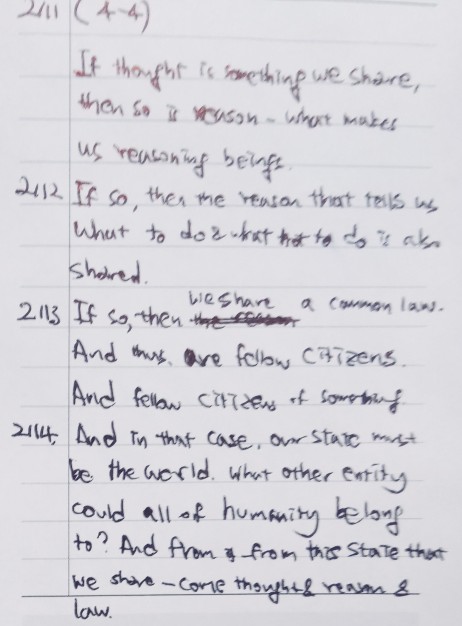 2111 (4-4)
If thought is something we share,
then so is reason - what makes
us reasoning beings.
2112 If so, then the reason that tells us
what to do & what not to do is also
shared.
2113 If so, then the reason we share a common law.
And thus, are fellow citizens.
And fellow citizens of something
2114. And in that case, our state must
be the world. What other entity
could all of humanity belong
to? And from & from this state that
we share - come thought & reason &
law.